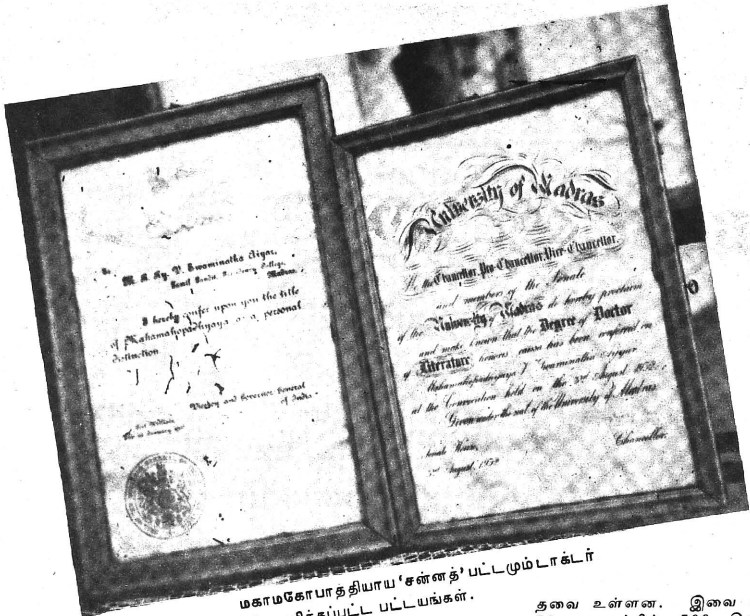 To
M. R. Ry. V. Swaminatha Aiyar,
Tamil Pandit, Presidency College,
Madras.
I hereby confer upon you the title
of Mahamahopadhyaya as a personal
distinction
Viceroy and Governor General
of India.
Fort William
University of Madras
the Chancellor, Pro-Chancellor, Vice-Chancellor,
and members of the Senate
of the University of Madras do hereby proclaim
and make known that the Degree of Doctor
of Literature honoris causa has been conferred on
Mahamahopadhyaya V. Swaminatha Aiyar
at the Convocation held on the 3rd August 1932
Given under the seal of the University of Madras
Senate House,
August, 1932
Chancellor
மகாமகோபாத்தியாய ‘சன்னத்’ பட்டமும் டாக்டர்
பட்டயங்கள்.
தவை உள்ளன. இவை